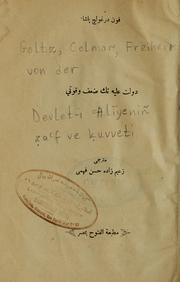 فون در غولچ پاشا
Goltz, Colmar, Freiherr
von der
دولت عليه نك ضعف وقوتي
Devlet-i Aliyeniñ
ża'f ve ḳuvveti
مترجمي
زعيم زاده حسن فهمي
مطبعة الفتوح بمصر